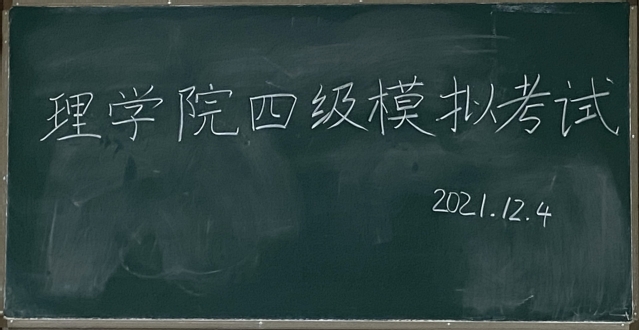 理学院四级模拟考试
2021.12.4